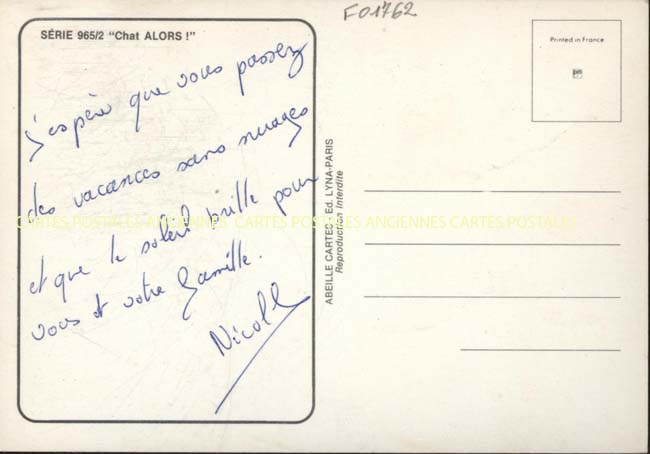 F01762
SÉRIE 965/2 "Chat ALORS !"
J'espère que vous passez
des vacances sans nuages
et que le soleil brille pour
vous et votre famille.
Nicole
CARTES POSTALES ANCIENNES CARTES POSTALES ANCIENNES CARTES POSTALES
ABEILLE CARTES - Ed. LYNA-PARIS
Reproduction Interdite
Printed in France